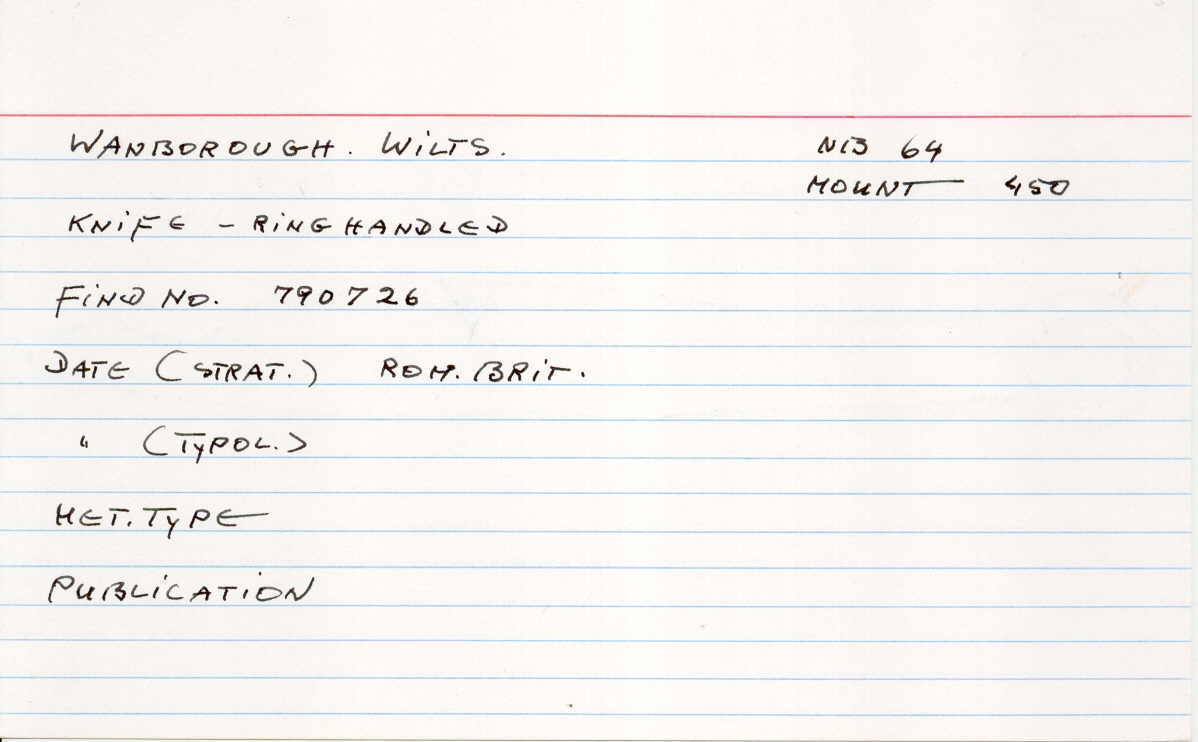 WANBOROUGH. WILTS. NB 64
MOUNT 450
KNIFE - RING HANDLED
FIND NO. 790726
DATE (STRAT.) ROM. BRIT.
" (TYPOL.)
MET. TYPE
PUBLICATION